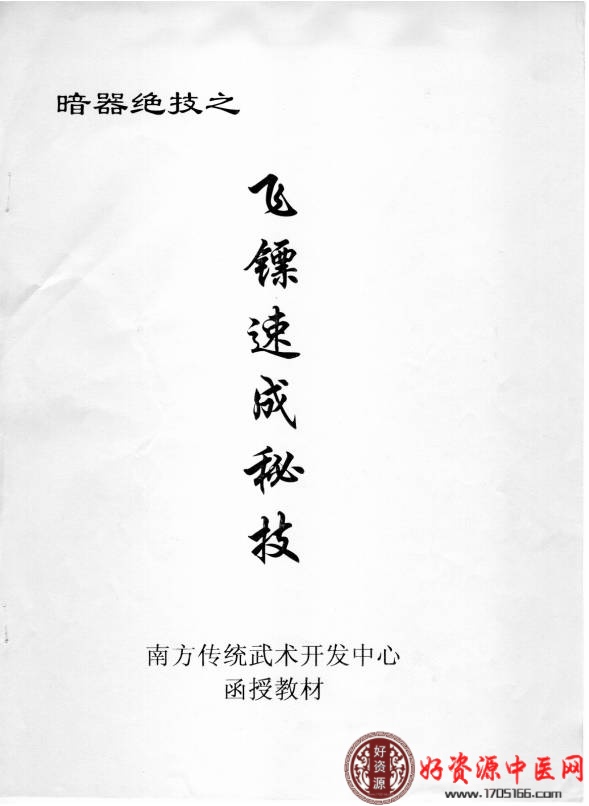 暗器绝技之
飞镖速成秘技
南方传统武术开发中心
函授教材
好资源
好资源中医网
www.1705166.com